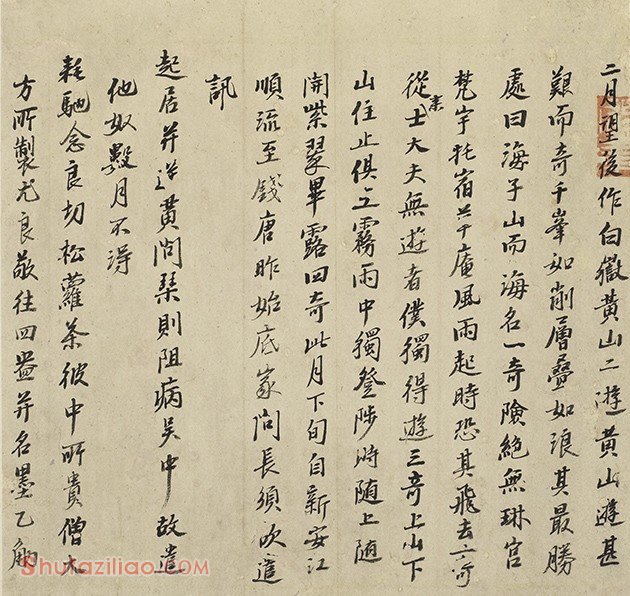 二月望後作白嶽黃山二遊黃山遊甚
艱而奇千峯如削層疊如浪其最勝
處曰海子山而海名一奇險絕無琳宮
梵宇托宿茅庵風雨起時恐其飛去二奇
從來士大夫無遊者僕獨得遊三奇上山下
山住止俱在霧雨中獨登陟時隨上隨
開紫翠畢露四奇此月下旬自新安江
順流至錢唐昨始底家問長須欲遣
訊
起居并送黃問琴則阻病吳中故遣
他奴數月不得
耗馳念良切松蘿茶彼中所貴僧大
方所製尤良敬往四壺并名墨乙
Shufaziliao.COM